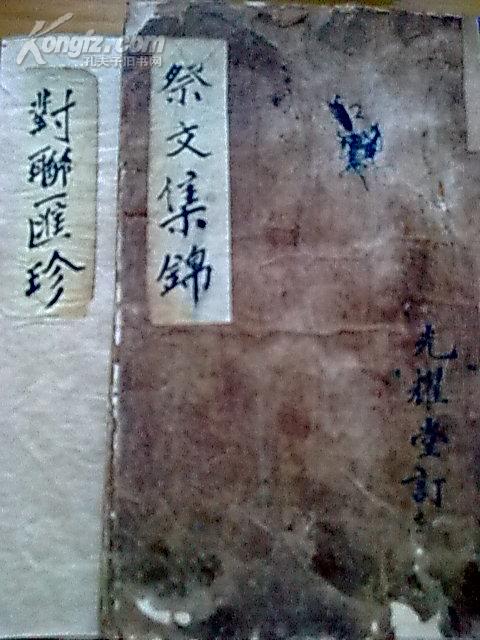 Kongfz.com
孔夫子旧书网
祭文集錦
光耀堂訂
對聯匯珍